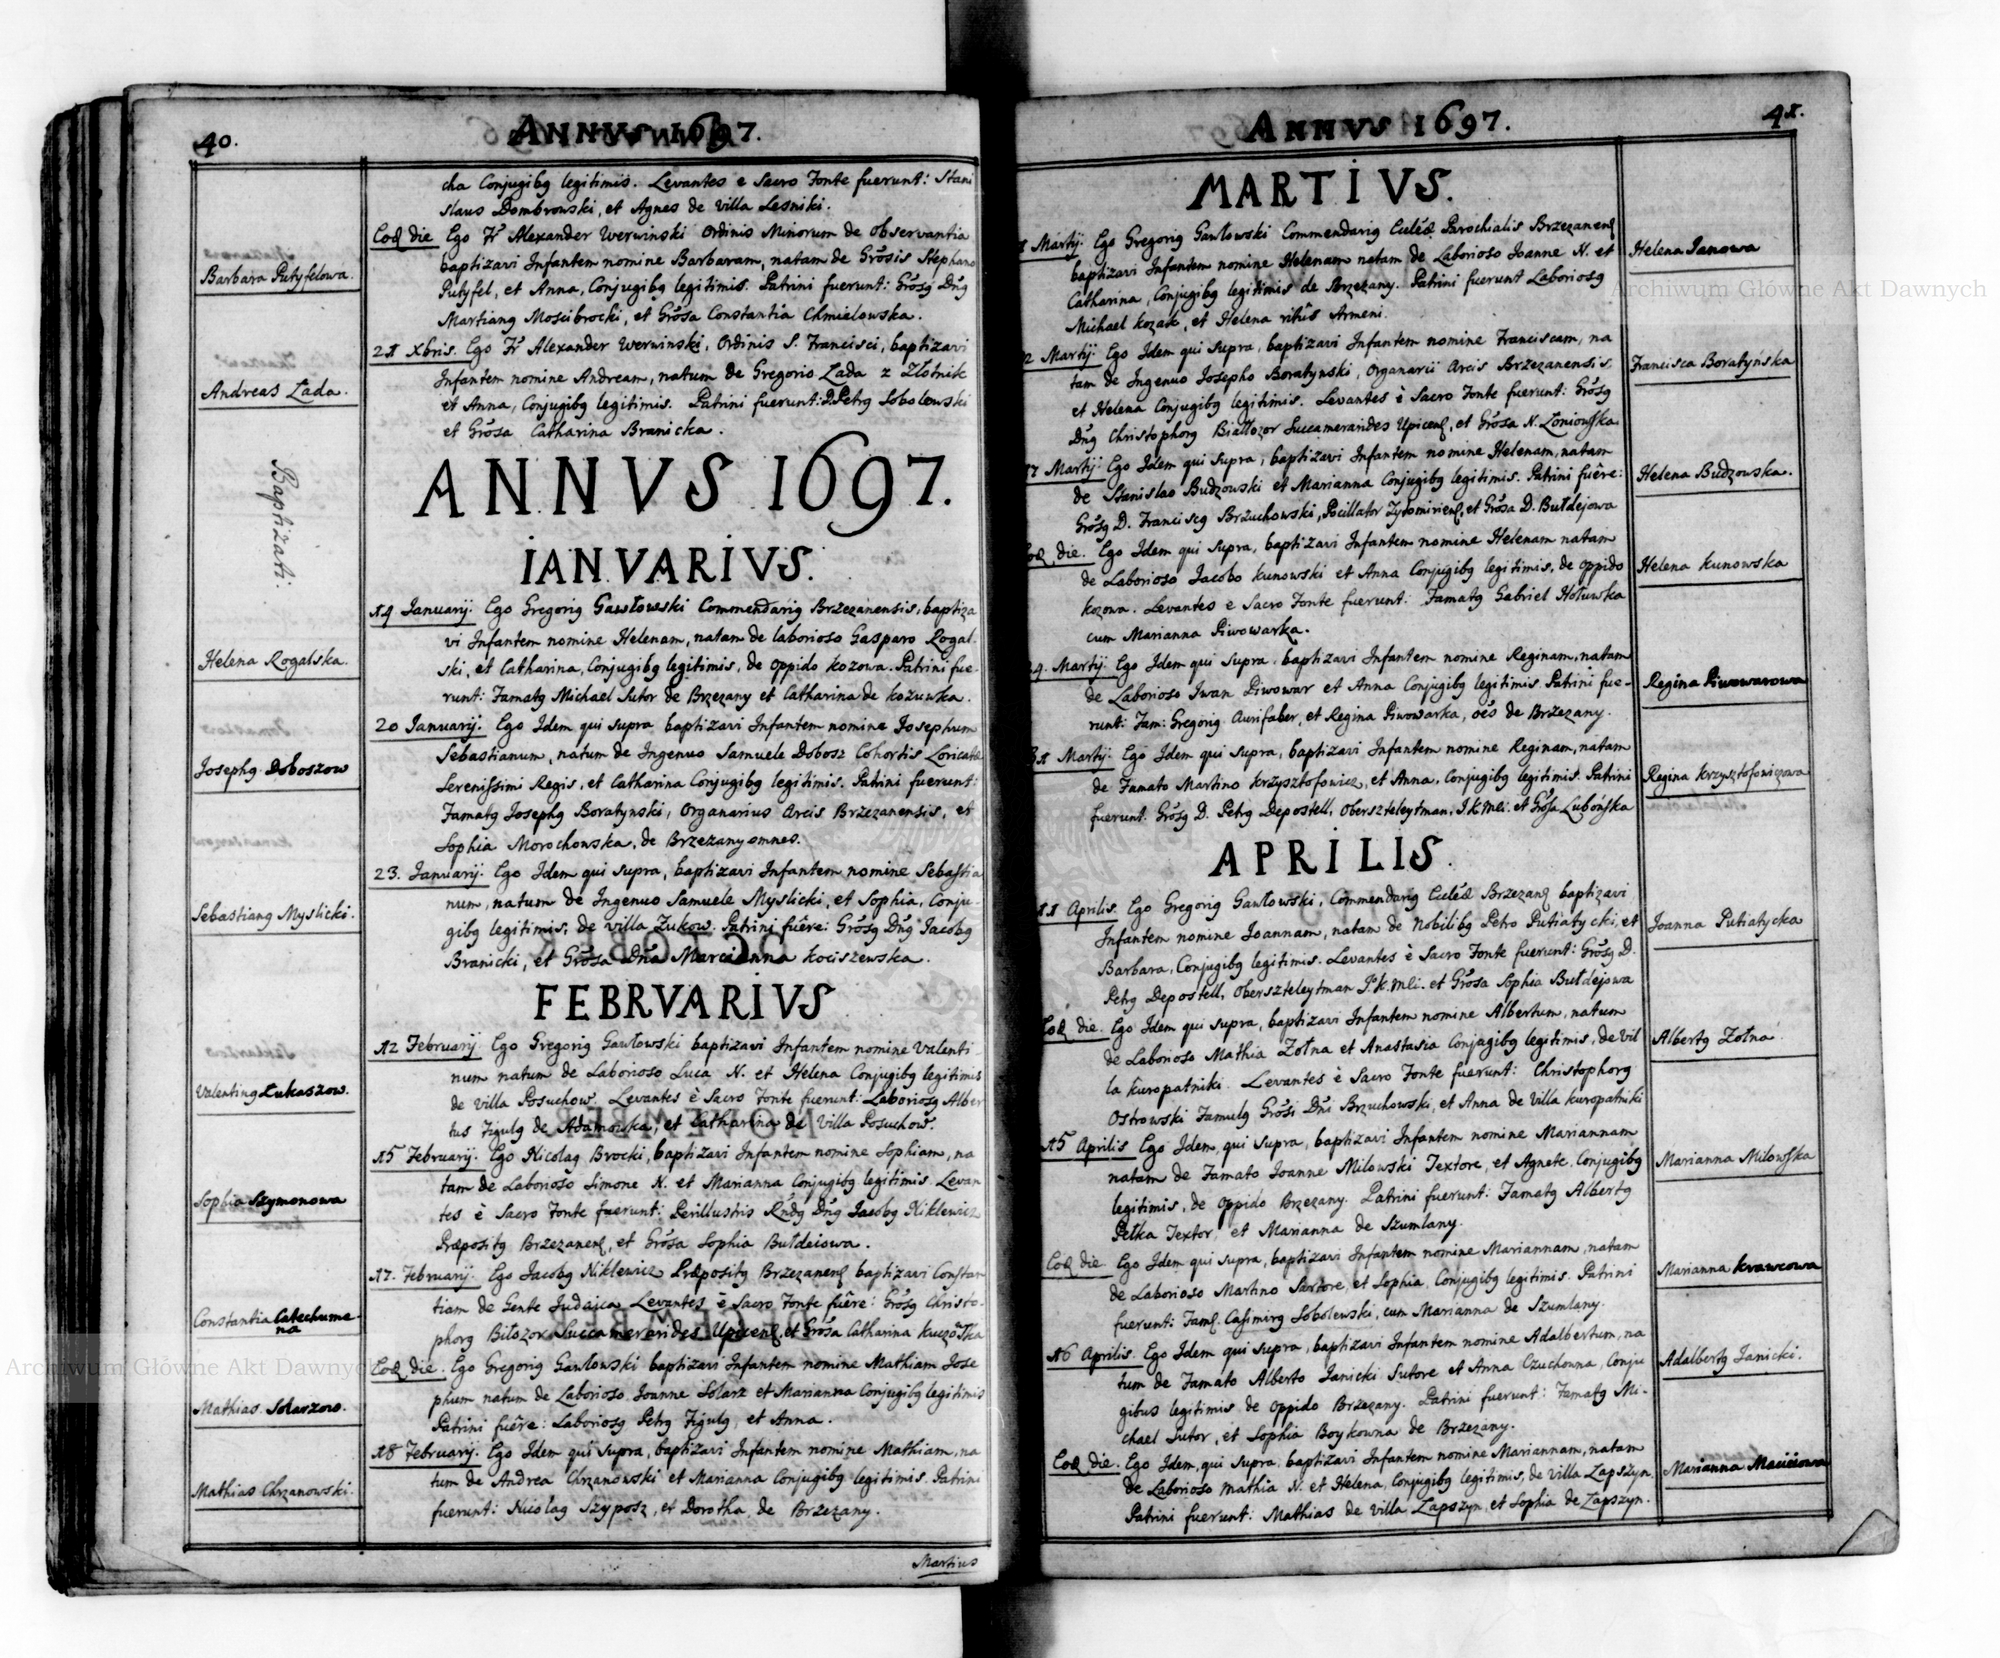 40.
ANNVS 1697.
cha Conjugibg legitimis. Levantes e Sacro Fonte fuerunt: Stani
slaus Dombrowski, et Agnes de villa Lesniki.
Barbara Putyfelowa.
Eod die Ego Fr Alexander Werwinski Ordinis Minorum de observantia
baptizavi Infantem nomine Barbaram, natam de Grosis Stephano
Putyfel, et Anna, Conjugibg legitimis. Patrini fuerunt: Grosg Dng
Martiang Moscibrocki, et Grosa Constantia Chmielowska.
Andreas Lada.
21 Xbris. Ego Fr Alexander Werwinski, Ordinis S. Francisci, baptizavi
Infantem nomine Andream, natum de Gregorio Lada z Złotnik
et Anna, Conjugibg legitimis. Patrini fuerunt: D. Petrg Sobolewski
et Grosa Catharina Branicka.
Baptizati.
ANNVS 1697.
IANVARIVS.
Helena Rogalska.
14 Ianuarij. Ego Gregorig Gawłowski Commendarig Brzezanensis, baptiza
vi Infantem nomine Helenam, natam de laborioso Gasparo Rogal-
ski, et Catharina, Conjugibg legitimis, de oppido Kozowa. Patrini fue
runt: Famatg Michael Sutor de Brzezany et Catharina de Kozuwka.
Josephg Doboszow
20 Ianuarij. Ego Idem qui supra baptizavi Infantem nomine Josephum
Sebastianum, natum de Ingenuo Samuele Dobosz Cohortis Loricatae
Serenissimi Regis, et Catharina Conjugibg legitimis. Patrini fuerunt:
Famatg Josephg Boratynski, Organarius Arcis Brzezanensis, et
Sophia Morochowska, de Brzezany omnes.
Sebastiang Myslicki.
23. Ianuarij. Ego Idem qui supra, baptizavi Infantem nomine Sebastia
num, natum de Ingenuo Samuele Myslicki, et Sophia, Conju-
gibg legitimis, de villa Zukow. Patrini fuêre: Grosg Dng Jacobg
Branicki, et Grosa Dna Marcianna Kociszewska.
FEBRVARIVS
Valenting Łukaszow.
12 February. Ego Gregorig Gawłowski baptizavi Infantem nomine Valenti
num natum de Laborioso Luca N. et Helena Conjugibg legitimis
de villa Posuchow. Levantes è Sacro fonte fuerunt: Laboriosg Alber
tus Figulg de Adamowka, et Catharina de villa Posuchow.
Sophia Szymonowa
15 February. Ego Nicolag Brocki, baptizavi Infantem nomine Sophiam, na
tam de Laborioso Simone N. et Marianna Conjugibg legitimis. Levan
tes è Sacro Fonte fuerunt: Perillustris Rndg Dng Jacobg Niklewicz
Præpositg Brzezanen, et Grosa Sophia Bułdeiowa.
Constantia Catechume-
na
17. February. Ego Jacobg Niklewicz Præpositg Brzezanen baptizavi Constan
tiam de Gente Judaica Levantes è Sacro Fonte fuêre: Grosg Christo-
phorg Biłozor Succamerarides Upicen, et Grosa Catharina
Mathias Solarzow.
Eod die. Ego Gregorig Gawłowski baptizavi Infantem nomine Mathiam Jose
phum natum de Laborioso Joanne Solarz et Marianna Conjugibg legitimis
Patrini fuêre: Laboriosg Petrg Figulg, et Anna.
Mathias Chrzanowski.
18 February. Ego Idem qui supra, baptizavi Infantem nomine Mathiam, na
tum de Andrea Chrzanowski et Marianna Conjugibg legitimis. Patrini
fuerunt: Nicolag Szyposz, et Dorotha de Brzezany.
Martius
ANNVS 1697.
41.
MARTIVS.
Helena Janowa
Martij. Ego Gregorig Gawłowski Commendarig Eccłæ Parochialis Brzezanen
baptizavi Infantem nomine Helenam natam de Laborioso Joanne N. et
Catharina, Conjugibg legitimis de Brzezany. Patrini fuerunt Laboriosg
Michael Kozak, et Helena ritûs Armeni.
Francisca Boratyńska
2 Martij. Ego Idem qui supra, baptizavi Infantem nomine Franciscam, na
tam de Ingenuo Josepho Boratynski, Organarii Arcis Brzezanensis,
et Helena Conjugibg legitimis. Levantes è Sacro Fonte fuerunt: Grosg
Dng Christophorg Białłozor Succamerarides Upicen, et Grosa N. Łoniowska
Helena Budzowska.
17 Martij. Ego Idem qui supra, baptizavi Infantem nomine Helenam, natam
de Stanislao Budzowski et Marianna Conjugibg legitimis. Patrini fuêre:
Grosg D. Franciscg Brzuchowski, Pocillator Zytomirien, et Grosa D. Bułdejowa
Helena Kunowska
Eod die. Ego Idem qui supra, baptizavi Infantem nomine Helenam natam
de Laborioso Jacobo Kunowski et Anna Conjugibg legitimis, de oppido
Kozowa. Levantes e Sacro Fonte fuerunt: Famatg Gabriel Hołuwka
cum Marianna Piwowarka.
Regina Piwowarowa
24. Martij. Ego Idem qui supra, baptizavi Infantem nomine Reginam, natam
de Laborioso Iwan Piwowar et Anna Conjugibg legitimis. Patrini fue-
runt: Fam: Gregorig Aurifaber, et Regina Piwowarka, oes de Brzezany.
Regina Krzysztofowiczowa
31 Martij. Ego Idem qui supra, baptizavi Infantem nomine Reginam, natam
de Famato Martino Krzysztofowicz, et Anna, Conjugibg legitimis. Patrini
fuerunt. Grosg D. Petrg Depostell, Obersztelejtman, J.K.Mci. et Grosa Lubońska
APRILIS.
Joanna Putiatycka
11 Aprilis. Ego Gregorig Gawłowski, Commendarig Eccłæ Brzezan baptizavi
Infantem nomine Joannam, natam de Nobilibg Petro Putiatycki, et
Barbara, Conjugibg legitimis. Levantes è Sacro Fonte fuerunt: Grosg D.
Petrg Depostell, Obersztelejtman J.K.Mci. et Grosa Sophia Bułdejowa
Albertg Zołna
Eod die. Ego Idem qui supra, baptizavi Infantem nomine Albertum, natum
de Laborioso Mathia Zołna et Anastasia Conjugibg legitimis, de vil
la Kuropatniki. Levantes è Sacro Fonte fuerunt: Christophorg
Ostrowski Famulg Grosi Dni Brzuchowski, et Anna de villa Kuropatniki
Marianna Milowska
15 Aprilis Ego Idem, qui supra, baptizavi Infantem nomine Mariannam
natam de Famato Joanne Milowski Textore, et Agnete, Conjugibg
legitimis, de oppido Brzezany. Patrini fuerunt: Famatg Albertg
Pełka Textor, et Marianna de Szumlany.
Marianna Krawcowa
Eod die. Ego Idem qui supra, baptizavi Infantem nomine Mariannam, natam
de Laborioso Martino Sartore, et Sophia, Conjugibg legitimis. Patrini
fuerunt: Fam. Casimirg Sobolewski, cum Marianna de Szumlany.
Adalbertg Janicki.
16 Aprilis. Ego Idem qui supra, baptizavi Infantem nomine Adalbertum, na
tum de Famato Alberto Janicki Sutore et Anna Czuchowna, Conju
gibus legitimis de oppido Brzezany. Patrini fuerunt: Famatg Mi-
chael Sutor, et Sophia Boykowna de Brzezany.
Marianna Maciiowa
Eod die. Ego Idem, qui supra, baptizavi Infantem nomine Mariannam, natam
de Laborioso Mathia N. et Helena, Conjugibg legitimis, de villa Łapszyn.
Patrini fuerunt: Mathias de villa Łapszyn, et Sophia de Łapszyn.
Archiwum Główne Akt Dawnych
Archiwum Główne Akt Dawnych